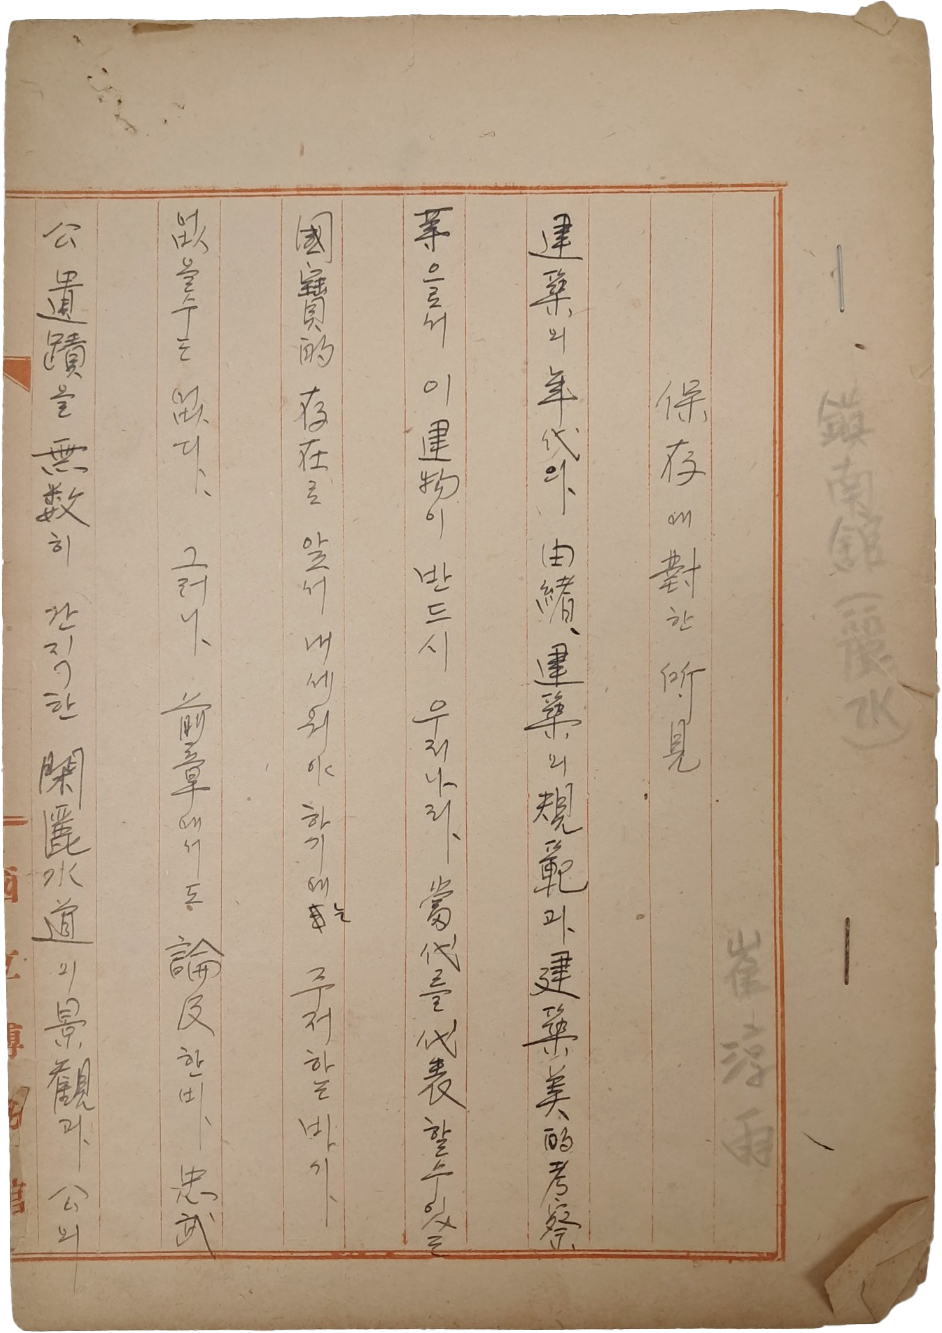 鎭南館(麗水)
崔淳雨
保存에 對한 所見
建築의 年代와、由緖、建築의 規範과、建築美的考察
等으로서 이 建物이 반드시 우리나라、當代를 代表할수있는
國寶的 存在로 앞서 내세워야 하기에는 주저하는바가、
없을수는 없다、 그러나、 前章에서도 論及한바、忠武
公 遺蹟을 無数히 간직한 閑麗水道의 景観과、公의
國立博物館